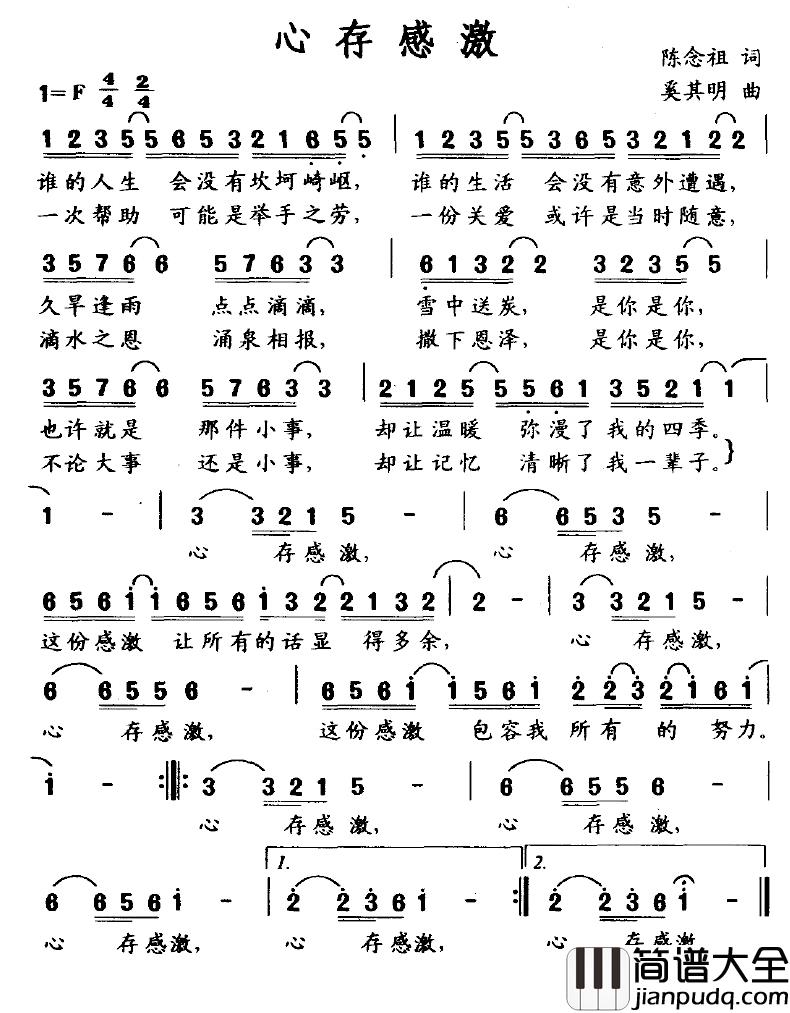 心存感激
陈念祖 词
1=F 4/4 2/4
奚其明 曲
1 2 3 5 5 6 5 3 2 1 6 5 5 | 1 2 3 5 5 3 6 5 3 2 1 2 2 |
谁的人生 会没有坎坷崎岖, 谁的生活 会没有意外遭遇,
一次帮助 可能是举手之劳, 一份关爱 或许是当时随意,
3 5 7 6 6 5 7 6 3 3 | 6 1 3 2 2 3 2 3 5 5 |
久旱逢雨 点点滴滴, 雪中送炭, 是你是你,
滴水之恩 涌泉相报, 撒下恩泽, 是你是你,
3 5 7 6 6 5 7 6 3 3 | 2 1 2 5 5 5 6 1 3 5 2 1 1
也许就是 那件小事, 却让温暖 弥漫了我的四季。
不论大事 还是小事, 却让记忆 清晰了我一辈子。}
1 - | 3 3 2 1 5 - | 6 6 5 3 5 - |
心 存感激, 心 存感激,
6 5 6 1 1 6 5 6 1 3 2 2 1 3 2 | 2 - | 3 3 2 1 5 - |
这份感激 让所有的话显 得多余, 心 存感激,
6 6 5 5 6 - | 6 5 6 1 1 5 6 1 2 2 3 2 1 6 1 |
心 存感激, 这份感激 包容我 所有 的 努力。
1 - :‖: 3 3 2 1 5 - | 6 6 5 5 6 - |
心 存感激, 心 存感激,
1. 2.
6 6 5 6 1 - | 2 2 3 6 1 - :‖ 2 2 3 6 1 - ‖
心 存感激, 心 存感激, 心 存感激
简谱大全
jianpudq.com